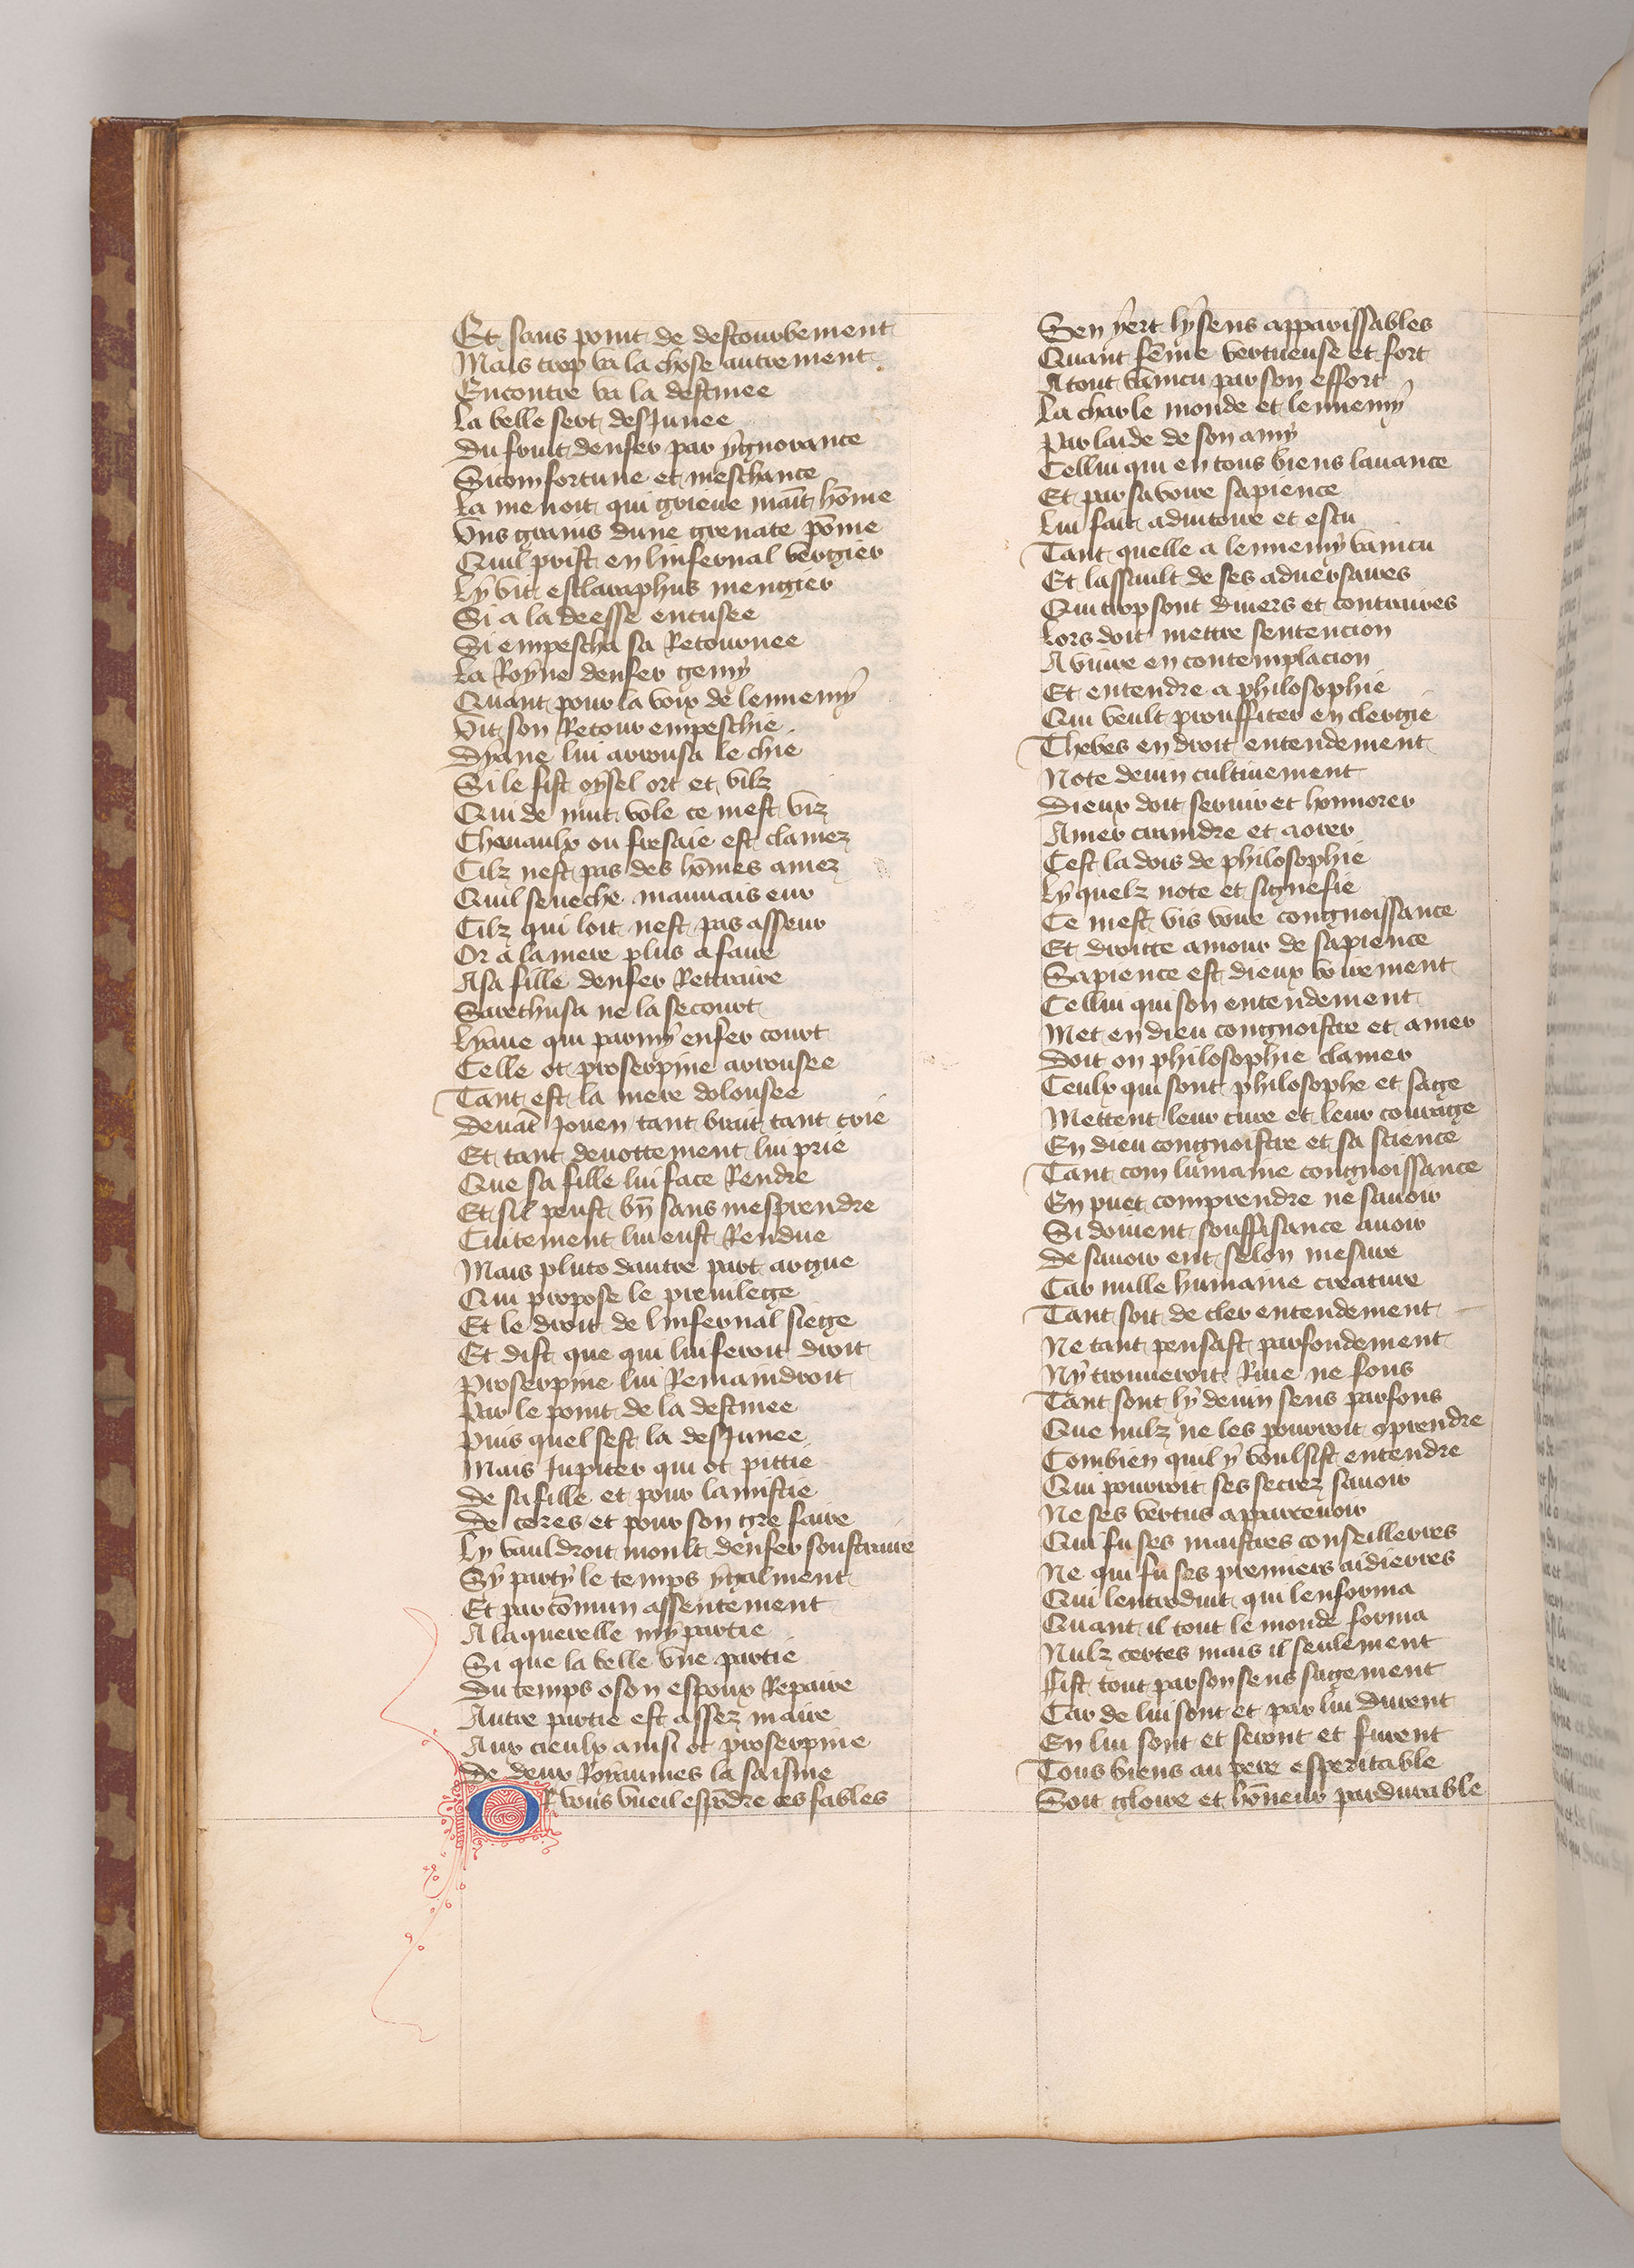 Et sans point de destourbement
Mais trop va la chose autrement
Encontre va la destinee
La belle sert desjunee
Du fruit denfer par ygnorance
Sicom fortune et meschance
La menoit qui grieue mait hōme
Uns grains dune grenate pōme
Quil prist en linfernal vergier
Ly vit esclaraphus mengier
Si a la deesse encusee
Si empescha sa Retournee
La Royne denfer gemy
Quant pour la voix de lennemy
Vit son Retour empeschie
Dyane lui arrousa le chie
Si le fist oysel ort et vilz
Qui de nuit vole ce mest viz
Chenaulx ou fresaie est clamez
Cilz nest pas des hōmes amez
Quil seneche mauuais eur
Cilz qui loit nest pas asseur
Or a la mere plus a faire
A sa fille denfer Rettraire
Sarethusa ne la secourt
Lyaue qui parmy enfer court
Celle ot proserpine arrousee
Tant est la mere dolousee
Deuāt Jouen tant brait tant crie
Et tant deuottement lui prie
Que sa fille lui face Rendre
Et sil peust bn̄ sans mesprendre
Cuitement lui eust Rendue
Mais pluto dautre part argue
Qui propose le preuilege
Et le droit de linfernal siege
Et dist que qui lui feroit droit
Proserpine lui Remaindroit
Par le point de la destinee
Puis quel sest la desjunee
Mais Jupiter qui ot pittie
De sa fille et pour lamistie
De ceres et pour son gre faire
Ly vauldroit moult denfer soustraire
Sy party le temps ygalment
Et par cōmun assentement
A la querelle my partie
Si que la belle vne partie
Du temps o son espoux Repaire
Autre partie est assez maire
Aux cieulx ainsi ot proserpine
De deux Royaumes la saisine
OR vous vueil espōdre ces fables
Sen yert ly sens apparissables
Quant fēme vertueuse et fort
A tout vaincu par son effort
La char le monde et lennemy
Par laide de son amy
Cellui qui en tous biens lauance
Et par sa voire sapience
Lui fait adiutoire et escu
Tant quelle a lennemy vaincu
Et lassault de ses aduersaires
Qui trop sont diuers et contraires
Lors doit mettre sentencion
A viure en contemplacion
Et entendre a philosophie
Qui veult prouffiter en clergie
Thebes en droit entendement
Note deuin cultiuement
Dieux doit seruir et honnorer
Amer craindre et aorer
Cest la dois de philosophie
Ly quelz note et signefie
Ce mest vis voire congnoissance
Et droitte amour de sapience
Sapience est dieux voirement
Cellui qui son entendement
Met en dieu congnoistre et amer
Doit on philosophie clamer
Ceulx qui sont philosophe et sage
Mettent leur cure et leur courage
En dieu congnoistre et sa science
Tant com lumaine congnoissance
En puet comprendre ne sauoir
Si doiuent souffisance auoir
De sauoir ent selon mesure
Car nulle humaine creature
Tant soit de cler entendement
Ne tant pensast parfondement
Ny trouueroit Riue ne fons
Tant sont ly deuin sens parfons
Que nulz ne les pourroit ꝯprendre
Combien quil y voulsist entendre
Qui pourroit ses secrez sauoir
Ne ses vertus apparceuoir
Qui fu ses maistres conseillerres
Ne qui fu ses premiers aidierres
Qui lentroduit qui lenforma
Quant il tout le monde forma
Nulz certes mais il seulement
Fist tout par son sens sagement
Car de lui sont et par lui durent
En lui sont et seront et furent
Tous biens au pere esperitable
Soit gloire et hōneur pardurable